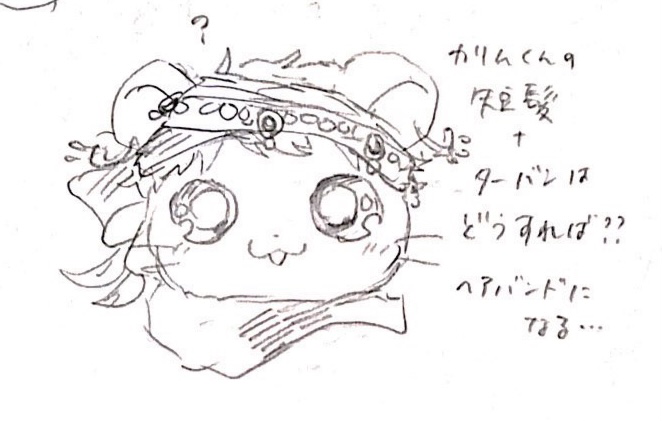 ?
カリムくんの
短髪
+
ターバンは
どうすれば??
ヘアバンドに
なる…